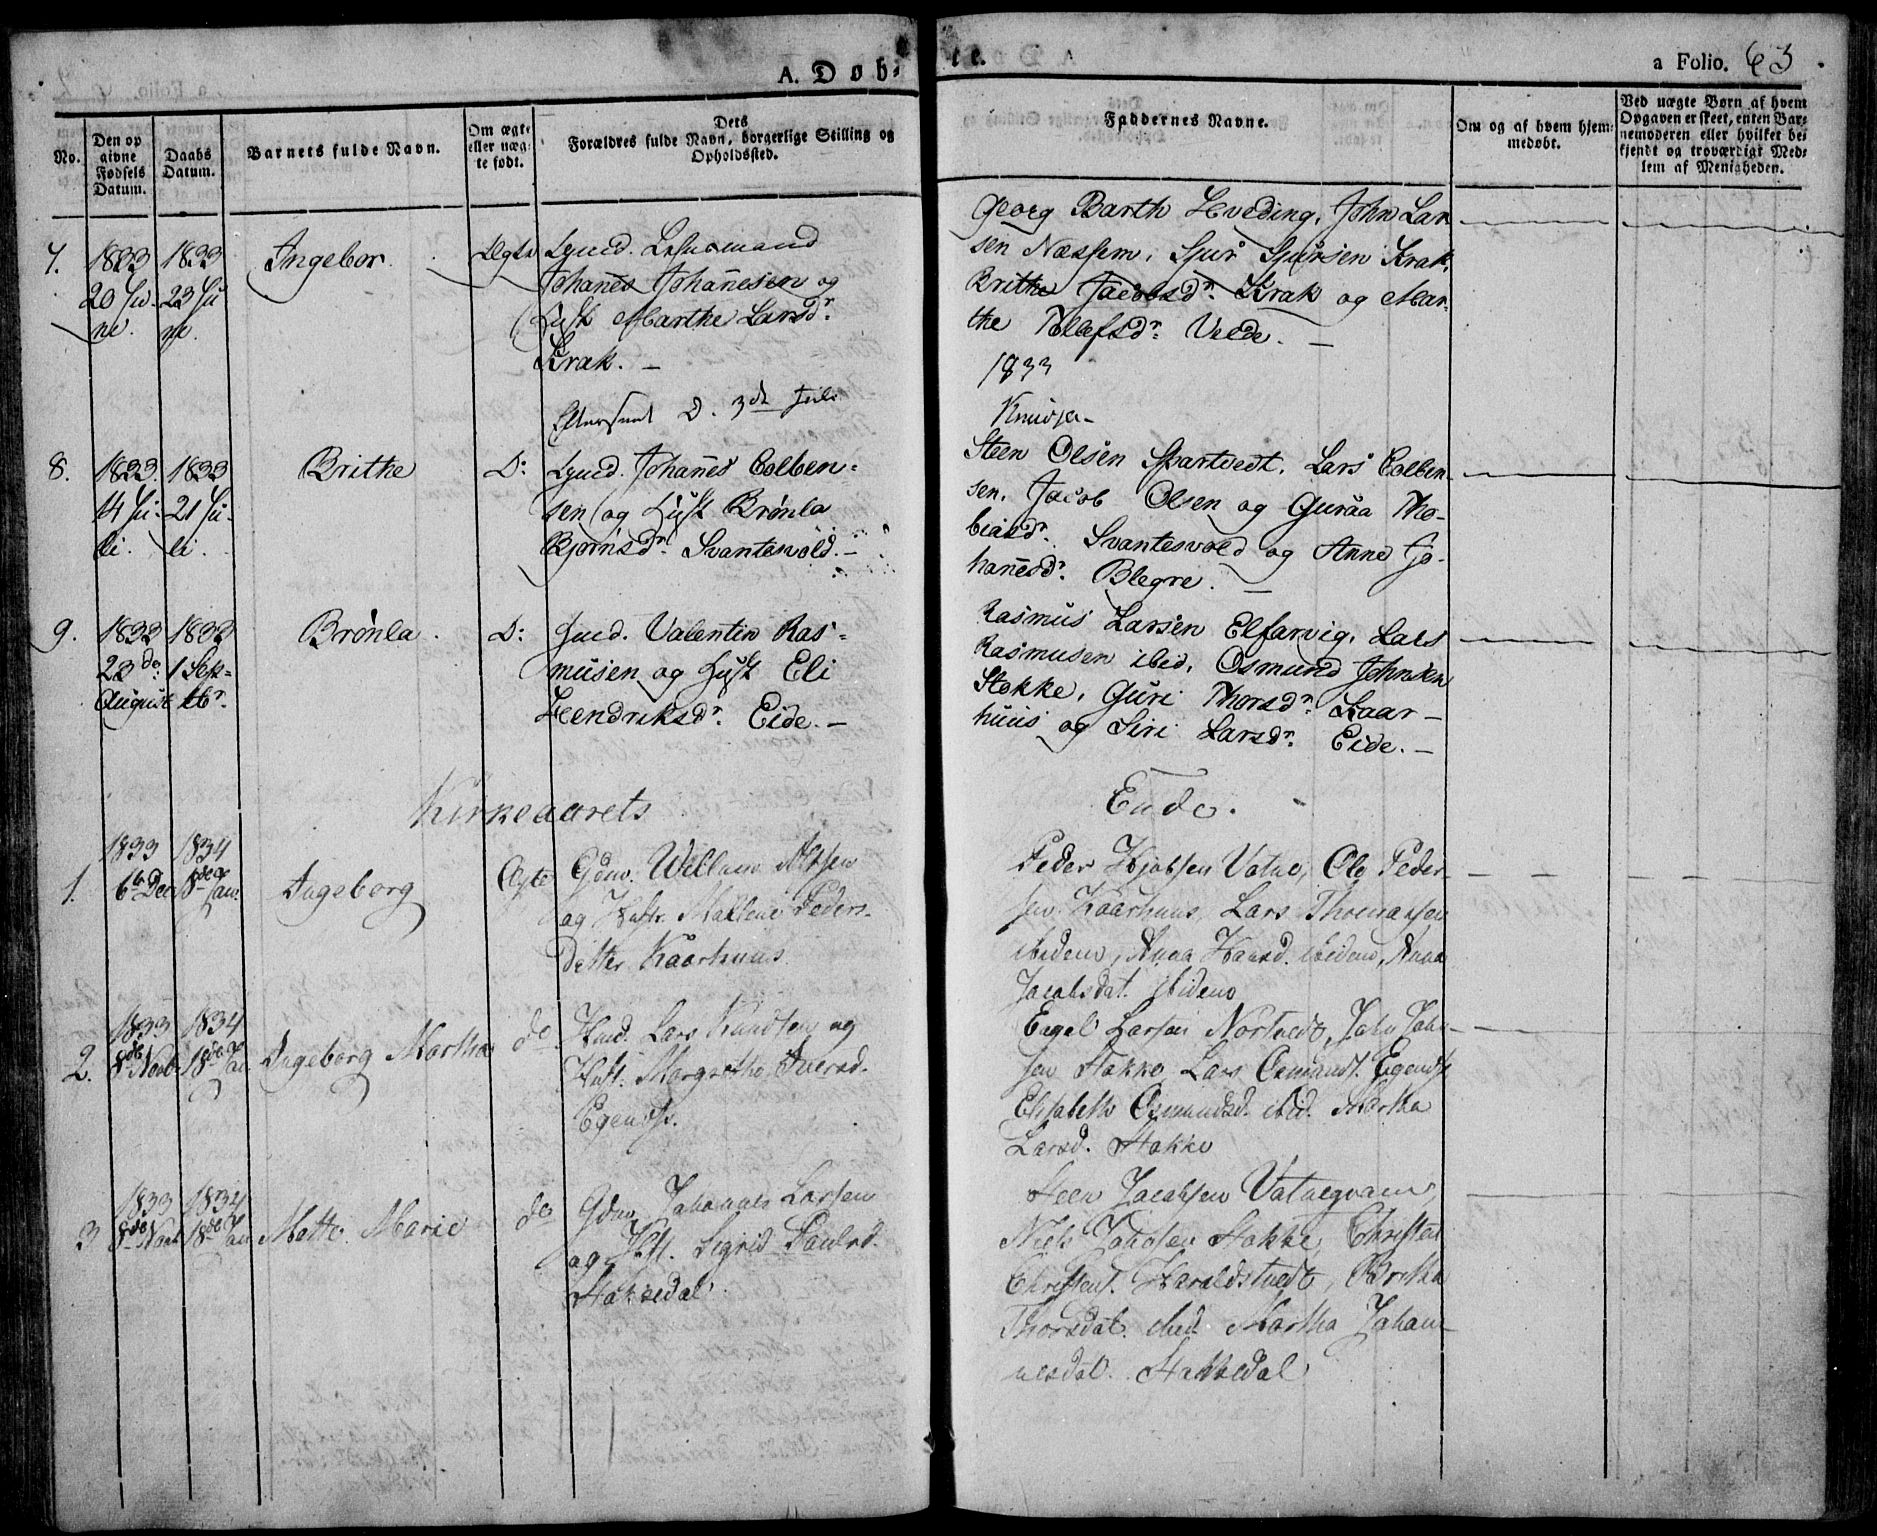 A. Døb-
te.
a Folio. 63
No.
Den op
givne
Fødsels
Datum.
Daabs
Datum.
Barnets fulde Navn.
Om ægte
eller uæg-
te født.
Dets
Forældres fulde Navn, borgerlige Stilling og
Opholdssted.
Faddernes Navne.
Om og af hvem hjem-
medøbt.
Ved uægte Børn af hvem
Opgaven er skeet, enten Bar-
nemoderen eller hvilket be-
kjendt og troværdigt Med-
lem af Menigheden.
7.
1833
20 Ju-
ni.
1833
23 Ju
ni.
Ingebor.
Ægte
Gmd. Lehnsmand
Johañes Johañesen og
Hust Marthe Larsdr.
Krak. —
Georg Barth Hveding, John Lar
sen Næssem, Sjur Sjursen Krak,
Brithe Jacobsdr. Krak og Mar-
the Velde. —
Eftersendt D. 3de Juli
1833
8.
1833.
14 Ju-
li.
1833
21 Ju-
li.
Brithe
D:
Gmd. Johañes Colben-
sen og Hust Brønla
Bjørnsdr. Svantesvold. —
Steen Olsen Spartvedt, Lars Colben-
sen, Jacob Olsen og Guraa Tho-
biasdr. Svantesvold og Anne Jo-
hañesdr. Blegre. —
9.
1833
23de
August
1833
1 Sep-
tbr.
Brønla.
D:
Valentin Ras-
musen og Hust Eli
Hendriksdr. Eide. —
Rasmus Larsen Elfarvig, Lars
Rasmusen ibid, Osmund Johnsen
Stokke, Guri Thorsdr. Kaar-
huus og Siri Larsdr. Eide. —
Kirkeaarets
Ende.
1.
1833
6te Dec
1834
Jan.
Ingeborg
Ægte
Gdm. Wellum
og Hustr. Mallene Peders-
datter Kaarhuus
Peder Vatne, Ole Peder-
sen Kaarhuus, Lars Thomassen
ibidem, Anna Hansd. ibidem, Anna
Jacobsdat. ibidem
2.
1833
8de Novb
1834
18de Jan
Ingeborg Martha
do
Lars Knudsen og
Hust. Margrethe Iversd.
Engel Larsen Nortvedt, John John-
sen Stokke, Lars Osmundt.
Elisabeth Osmundsd. ibid. Martha
Larsd. Stokke
3
1833
8de Novb
1834
18de Jan
Mette Marie
do
Gdm. Johannes Larsen
og Hust. Sigrid Paulsd.
Stoksedal
Steen Jacobsen Vatnegvam,
Niels Johnsen Stokke, Christen
Christens. Haraldstvedt, Brithe
Thorsdat. ibid. Martha Johan-
nesdat. Stoksedal